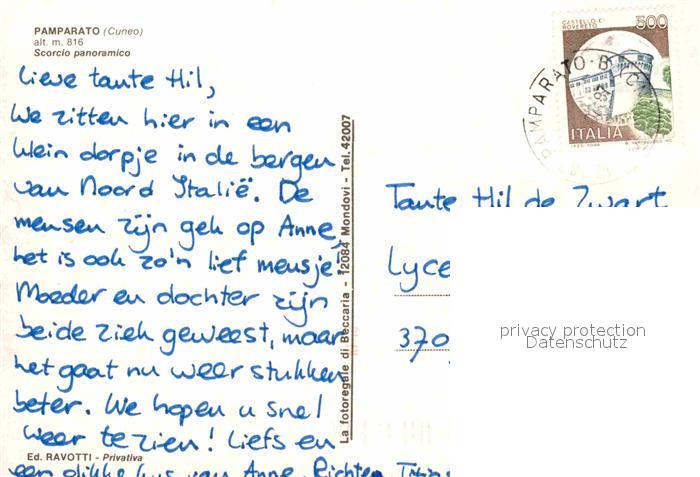 PAMPARATO (Cuneo)
alt. m. 816
Scorcio panoramico
Lieve tante Hil,
We zitten hier in een
klein dorpje in de bergen
van Noord Italië. De
mensen zijn gek op Anne,
het is ook zo'n lief mensje!
Moeder en dochter zijn
beide ziek geweest, maar
het gaat nu weer stukken
beter. We hopen u snel
weer te zien! Liefs en
een dikke kus van Anne, Richten,
Ed. RAVOTTI - Privativa
La fotoregale di Beccaria - 12084 Mondovì - Tel. 42007
CASTELLO DI
ROVERETO
500
ITALIA
PAMPARATO
Tante Hil de Zwart
Lyce
370
privacy protection
Datenschutz